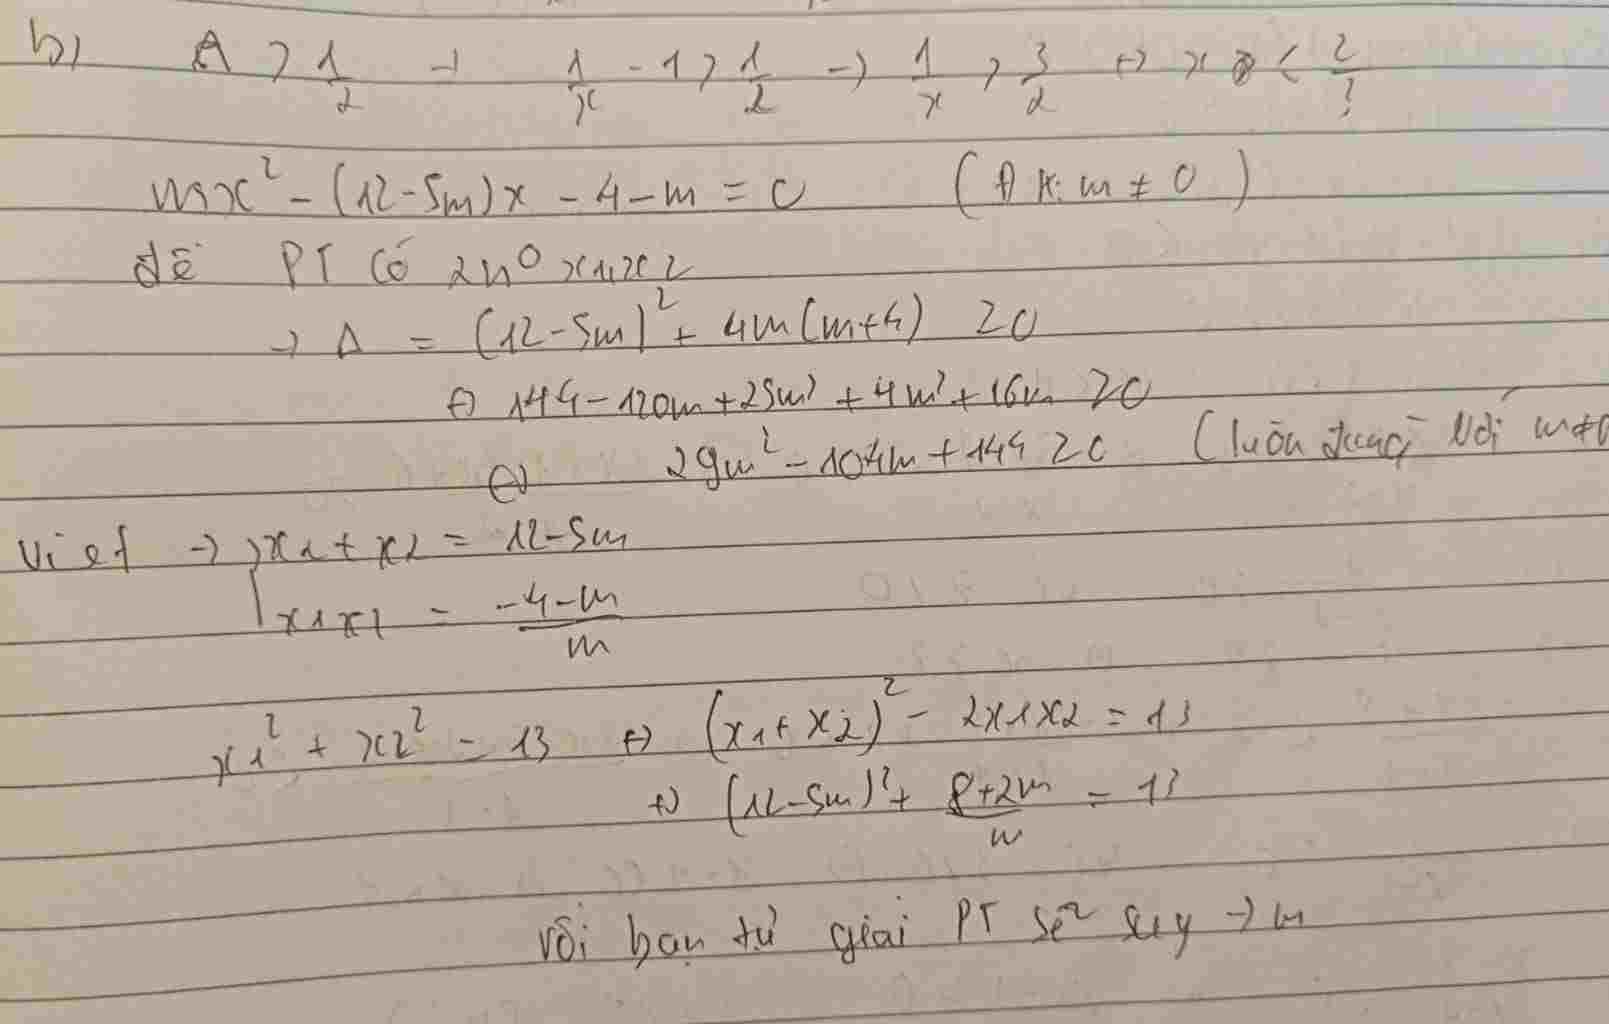 b) A > 1/2 → 1/x - 1 > 1/2 → 1/x > 3/2 ↔ x < 2/3
mx² - (12-5m)x - 4 - m = 0 (ĐK: m ≠ 0)
để PT có 2n⁰ x1, x2
→ Δ = (12-5m)² + 4m(m+4) ≥ 0
↔ 144 - 120m + 25m² + 4m² + 16m ≥ 0
↔ 29m² - 104m + 144 ≥ 0 (luôn đúng với m≠0
Viet → { x1 + x2 = 12-5m
x1x2 = (-4-m)/m
x1² + x2² = 13 ↔ (x1 + x2)² - 2x1x2 = 13
↔ (12-5m)² + (8+2m)/m = 13
rồi bạn tự giải PT sẽ suy → m